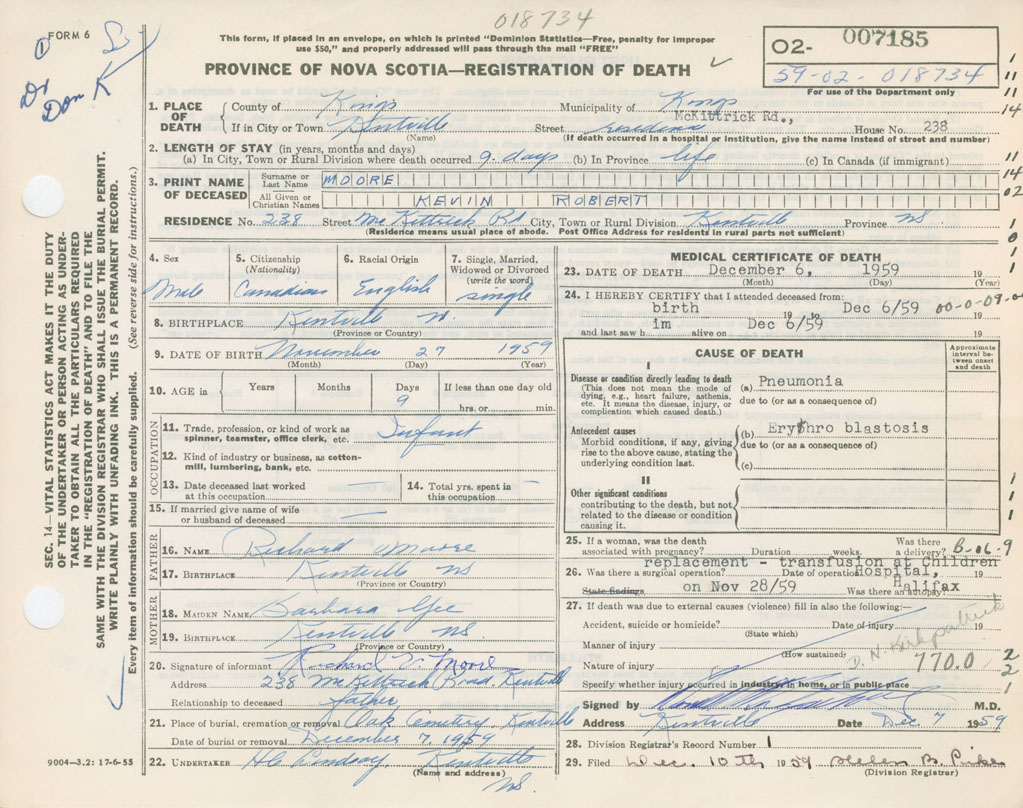 018734
FORM 6
This form, if placed in an envelope, on which is printed "Dominion Statistics—Free, penalty for improper
use $50," and properly addressed will pass through the mail "FREE"
02- 007185
59-02-018734
For use of the Department only
PROVINCE OF NOVA SCOTIA—REGISTRATION OF DEATH
Dr
Don K
SEC. 14—VITAL STATISTICS ACT MAKES IT THE DUTY
OF THE UNDERTAKER OR PERSON ACTING AS UNDER-
TAKER TO OBTAIN ALL THE PARTICULARS REQUIRED
IN THE "REGISTRATION OF DEATH" AND TO FILE THE
SAME WITH THE DIVISION REGISTRAR WHO SHALL ISSUE THE BURIAL PERMIT.
WRITE PLAINLY WITH UNFADING INK. THIS IS A PERMANENT RECORD.
Every item of information should be carefully supplied. (See reverse side for instructions.)
1. PLACE OF DEATH
County of Kings Municipality of Kings
McKittrick Rd.,
If in City or Town Kentville Street residence House No. 238
(Name) (If death occurred in a hospital or institution, give the name instead of street and number)
2. LENGTH OF STAY (in years, months and days)
(a) In City, Town or Rural Division where death occurred 9 days (b) In Province life (c) In Canada (if immigrant)
3. PRINT NAME OF DECEASED
Surname or Last Name MOORE
All Given or Christian Names KEVIN ROBERT
RESIDENCE No. 238 Street McKittrick Rd City, Town or Rural Division Kentville Province NS
(Residence means usual place of abode. Post Office Address for residents in rural parts not sufficient)
4. Sex Male
5. Citizenship (Nationality) Canadian
6. Racial Origin English
7. Single, Married, Widowed or Divorced (write the word) single
8. BIRTHPLACE Kentville
(Province or Country)
9. DATE OF BIRTH November 27 1959
(Month) (Day) (Year)
10. AGE in Years Months Days 9 If less than one day old
hrs. or min.
OCCUPATION
11. Trade, profession, or kind of work as
spinner, teamster, office clerk, etc. Infant
12. Kind of industry or business, as cotton-
mill, lumbering, bank, etc. —
13. Date deceased last worked
at this occupation —
14. Total yrs. spent in
this occupation —
15. If married give name of wife
or husband of deceased —
FATHER
16. NAME Richard Moore
17. BIRTHPLACE Kentville NS
(Province or Country)
MOTHER
18. MAIDEN NAME Barbara Gee
19. BIRTHPLACE Kentville NS
(Province or Country)
20. Signature of informant Richard V. Moore
Address 238 McKittrick Road, Kentville
Relationship to deceased Father
21. Place of burial, cremation or removal Oak Cemetery, Kentville
Date of burial or removal December 7, 1959
22. UNDERTAKER H C Lindsay, Kentville
(Name and address) NS.
9004—3,2: 17-6-55
MEDICAL CERTIFICATE OF DEATH
23. DATE OF DEATH December 6, 1959 19
(Month) (Day) (Year)
24. I HEREBY CERTIFY that I attended deceased from:
birth 19 to Dec 6/59 00-0-09-00
and last saw h im alive on Dec 6/59 19
CAUSE OF DEATH
Approximate interval between onset and death
I
Disease or condition directly leading to death
(This does not mean the mode of
dying, e.g., heart failure, asthenia,
etc. It means the disease, injury, or
complication which caused death.)
(a) Pneumonia
due to (or as a consequence of)
Antecedent causes
Morbid conditions, if any, giving
rise to the above cause, stating the
underlying condition last.
(b) Erythro blastosis
due to (or as a consequence of)
(c)
II
Other significant conditions
contributing to the death, but not
related to the disease or condition
causing it.
25. If a woman, was the death
associated with pregnancy? Duration weeks. Was there a delivery? B-06-9
replacement - transfusion at Children
26. Was there a surgical operation? Date of operation Hospital, 19
State findings on Nov 28/59 Was there an autopsy? Halifax
27. If death was due to external causes (violence) fill in also the following:—
Accident, suicide or homicide? Date of injury 19
(State which)
Manner of injury
(How sustained)
D. N. Kirkpatrick
Nature of injury 770.0
Specify whether injury occurred in industry, in home, or in public place
Signed by M.D.
Address Kentville Date Dec 7 1959
28. Division Registrar's Record Number 1
29. Filed Dec. 10th 1959 Helen B.
(Division Registrar)
1
11
11
14
11
14
02
1
0
1
1
1
1
2
2
1